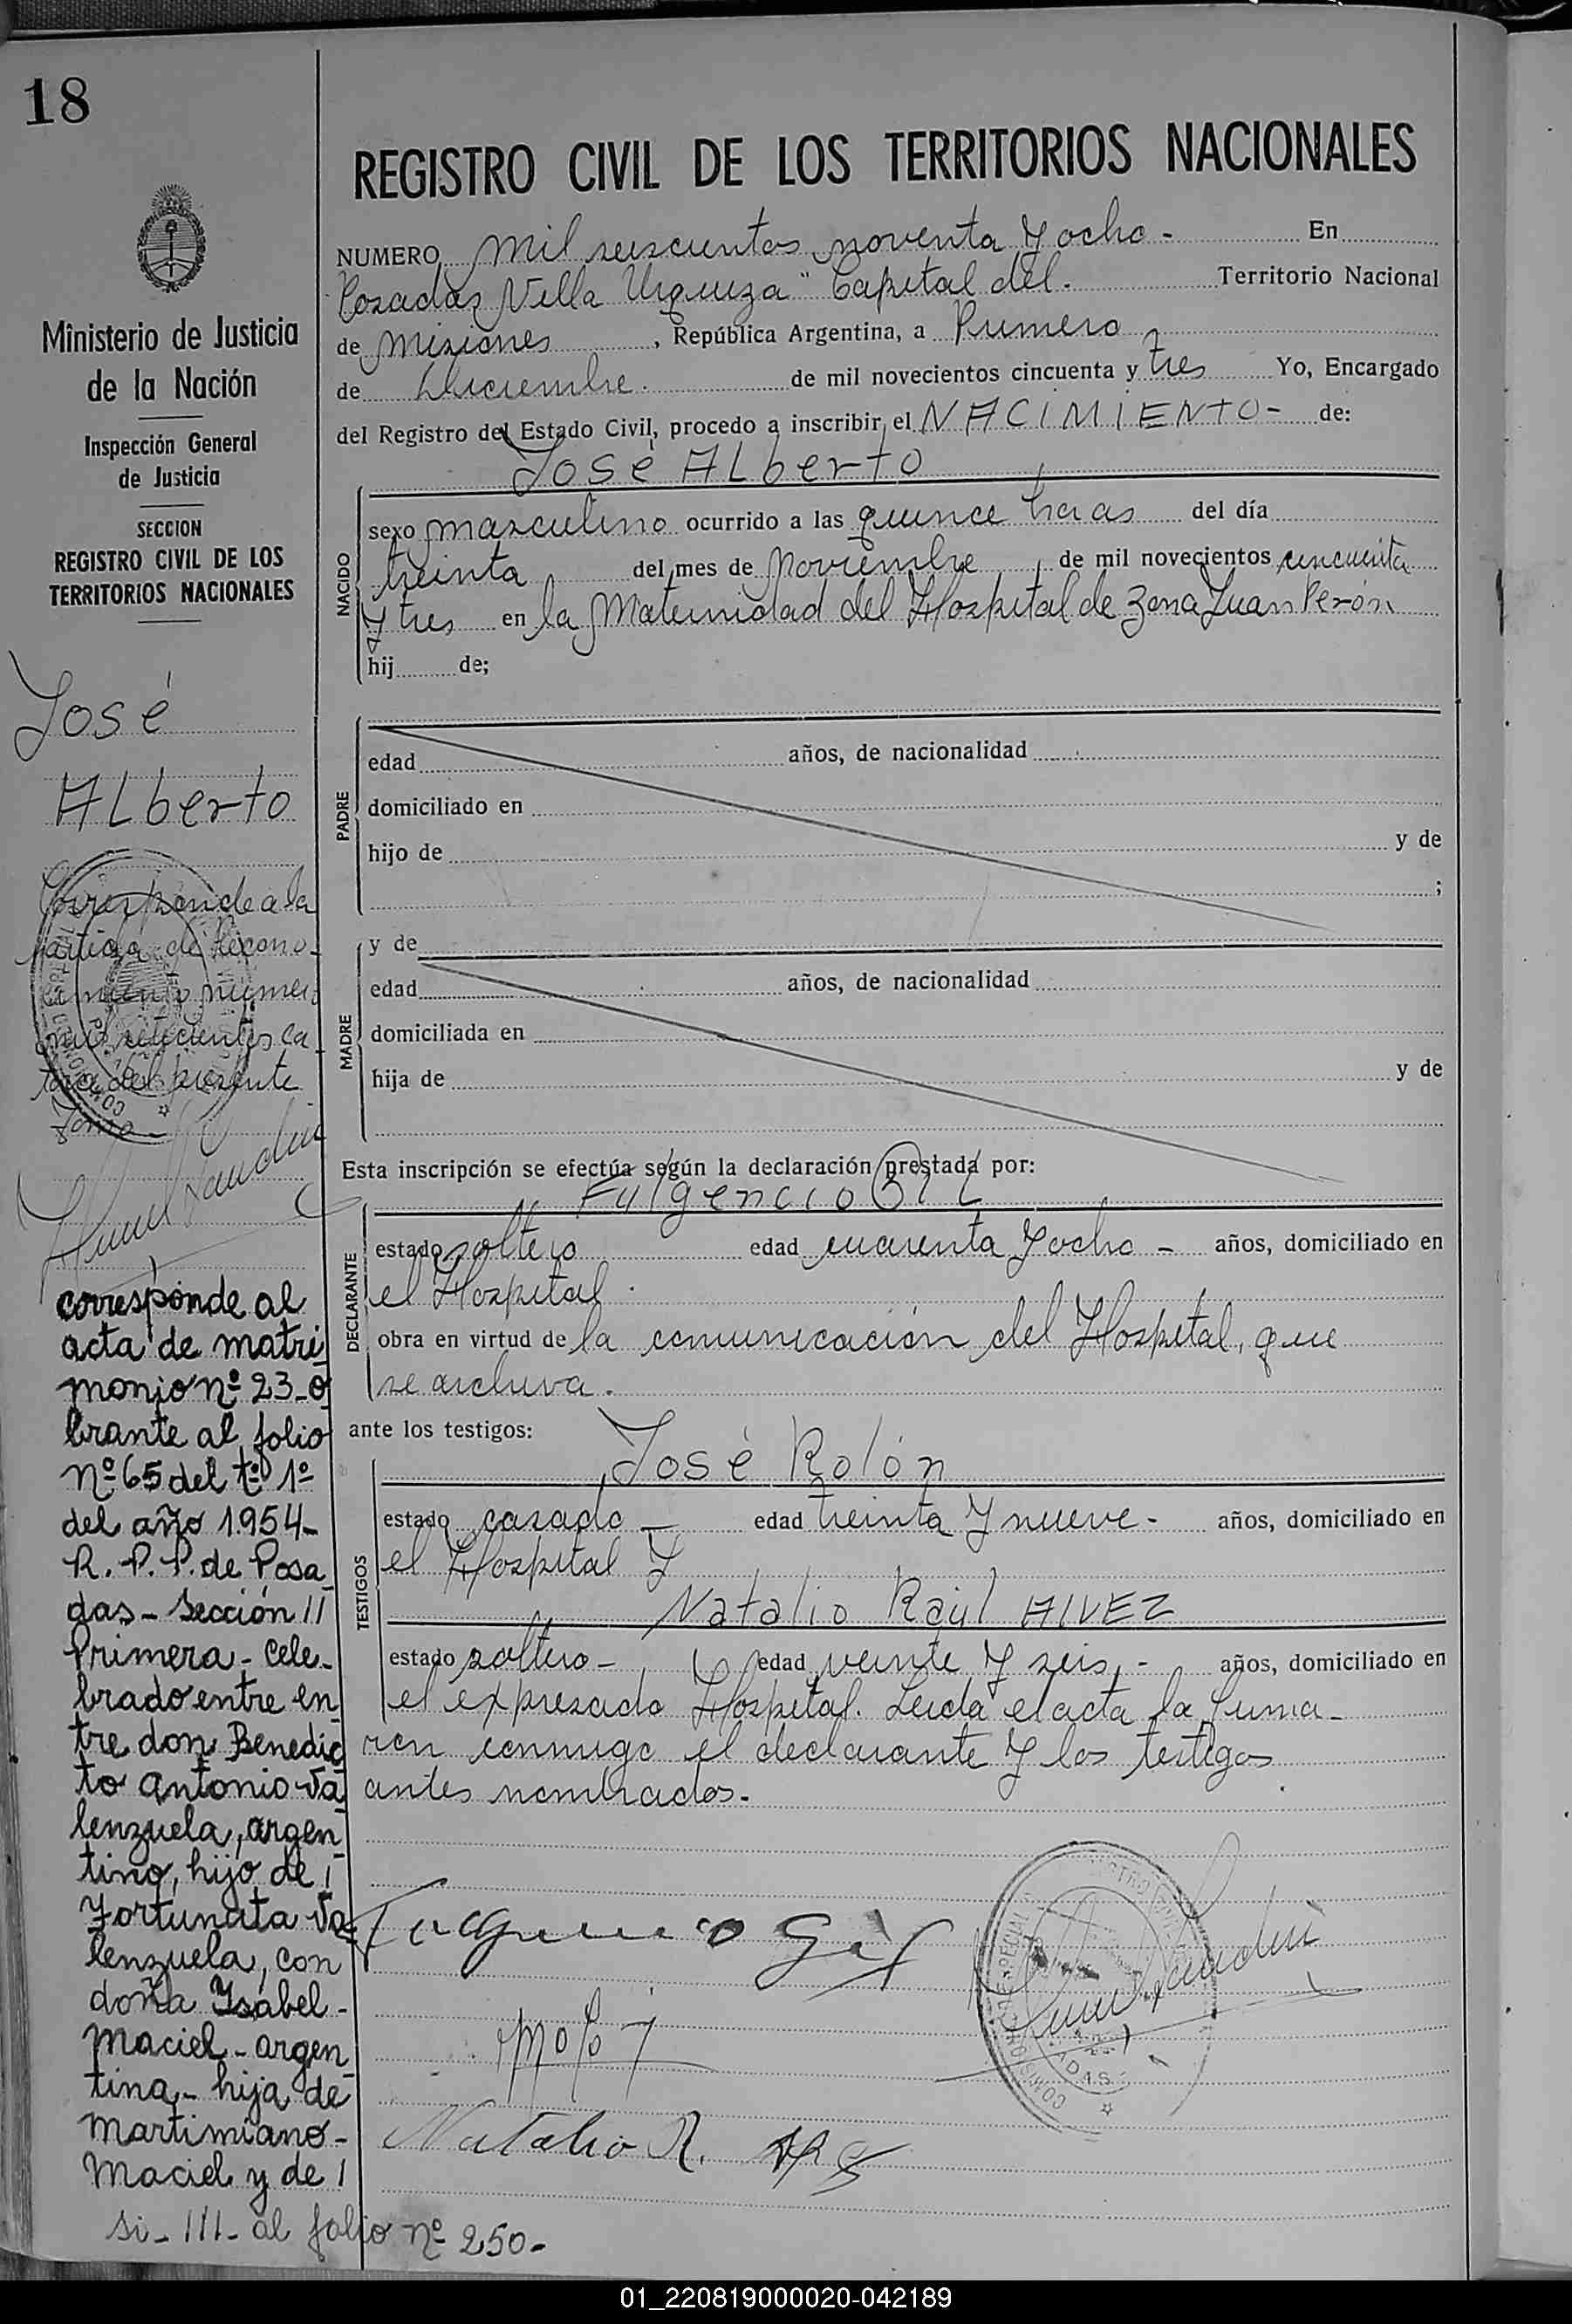 18
Ministerio de Justicia
de la Nación
Inspección General
de Justicia
SECCION
REGISTRO CIVIL DE LOS
TERRITORIOS NACIONALES
José
Alberto
Corresponde a la
partida de recono-
cimiento número
mil setecientos ca
torce del presente
Tomo
corresponde al
acta de matri
monio nº 23-o
brante al folio
nº 65 del tº 1º
del año 1954-
R. P. P. de Posa
das - Sección 11
Primera - cele-
brado entre en
tre don Benedic
to Antonio Va
lenzuela, argen
tino, hijo de
Fortunata Va
lenzuela, con
doña Ysabel-
Maciel - argen
tina - hija de
Martimiano-
Maciel y de /
si- 111- al folio nº 250-
REGISTRO CIVIL DE LOS TERRITORIOS NACIONALES
NUMERO mil seiscientos noventa y ocho - En
Posadas Villa Urquiza" Capital del. Territorio Nacional
de Misiones, República Argentina, a Primero
de Diciembre. de mil novecientos cincuenta y tres Yo, Encargado
del Registro del Estado Civil, procedo a inscribir el NACIMIENTO- de:
José Alberto
NACIDO
sexo masculino ocurrido a las quince horas del día
treinta del mes de noviembre de mil novecientos cincuenta
y tres en la Maternidad del Hospital de Zona Juan Perón
hij de;
PADRE
edad años, de nacionalidad
domiciliado en
hijo de y de
;
MADRE
y de
edad años, de nacionalidad
domiciliada en
hija de y de
Esta inscripción se efectúa según la declaración prestada por:
Fulgencio Gil
DECLARANTE
estado soltero edad cuarenta y ocho - años, domiciliado en
el Hospital.
obra en virtud de la comunicación del Hospital, que
se archiva.
ante los testigos:
José Rolón
TESTIGOS
estado casado - edad treinta y nueve - años, domiciliado en
el Hospital y
Natalio Raúl ALVEZ
estado soltero - edad veinte y seis, - años, domiciliado en
el expresado Hospital. Leída el acta la firma-
ron conmigo el declarante y los testigos
antes nombrados.-
Fulgencio Gil
Natalio R.
01_220819000020-042189